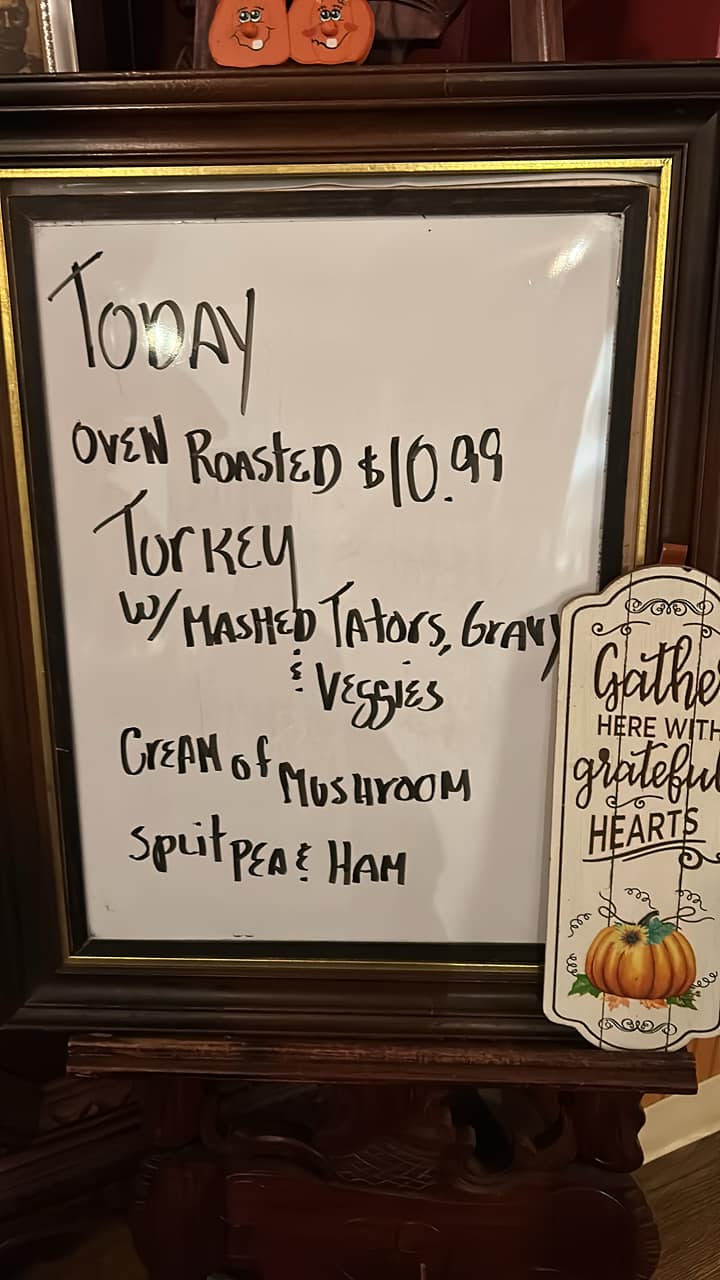 TODAY
OVEN ROASTED $10.99
TURKEY
W/ MASHED TATORS, GRAVY
& VEGGIES
CREAM of MUSHROOM
Split PEA & HAM
Gather
HERE WITH
grateful
HEARTS